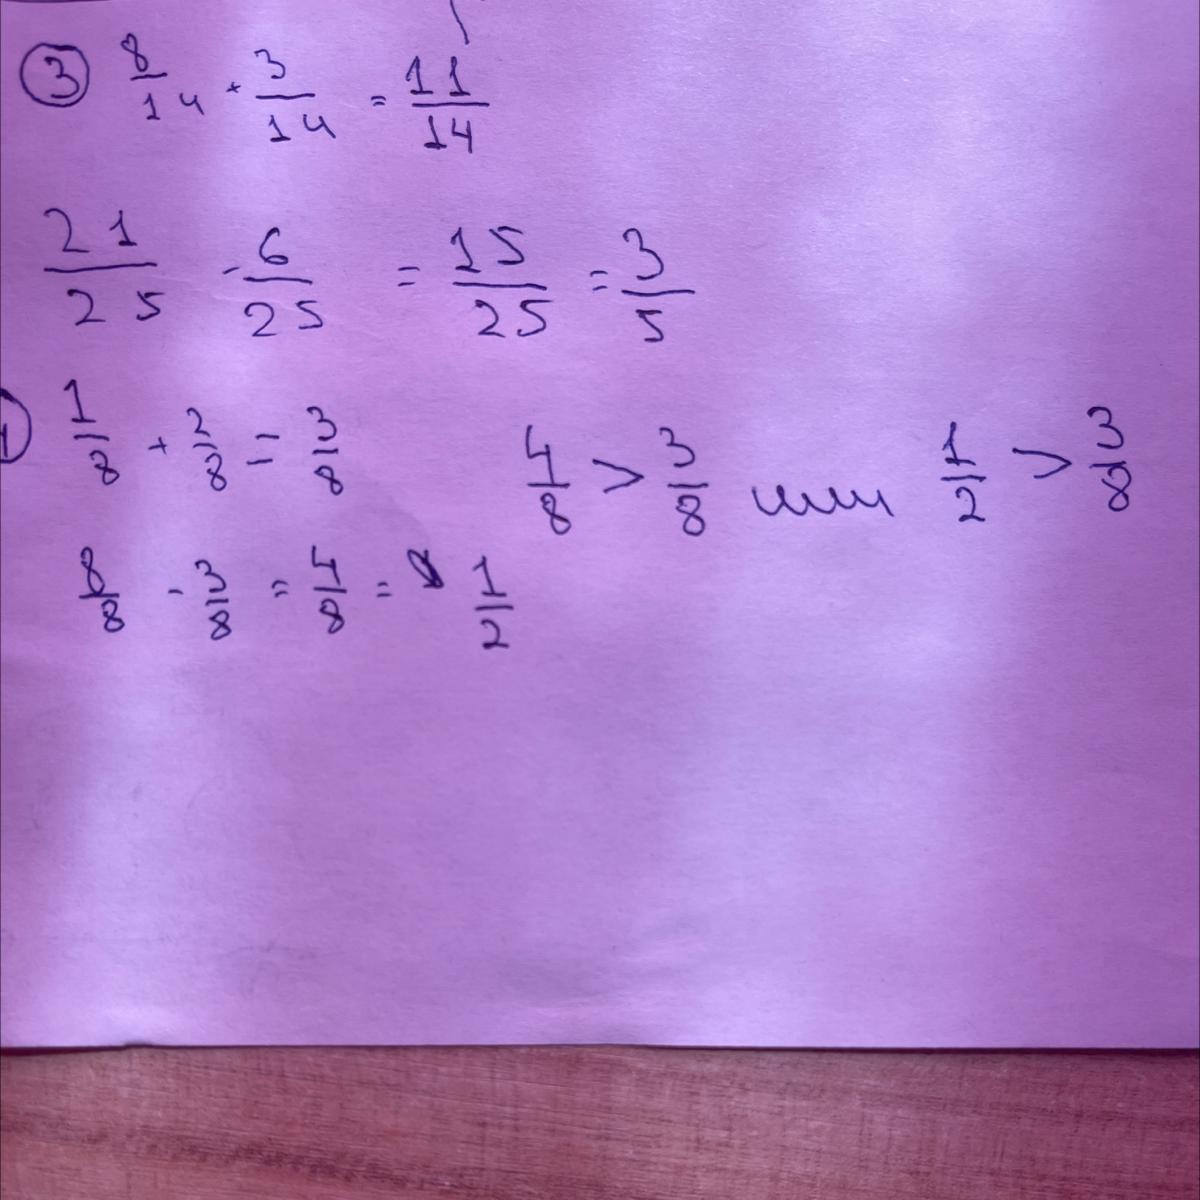 ③ 8/14 + 3/14 = 11/14
21/25 - 6/25 = 15/25 = 3/5
1/8 + 2/8 = 3/8 4/8 > 3/8 или 1/2 > 3/8
8/8 - 3/8 = 4/8 = 1/2